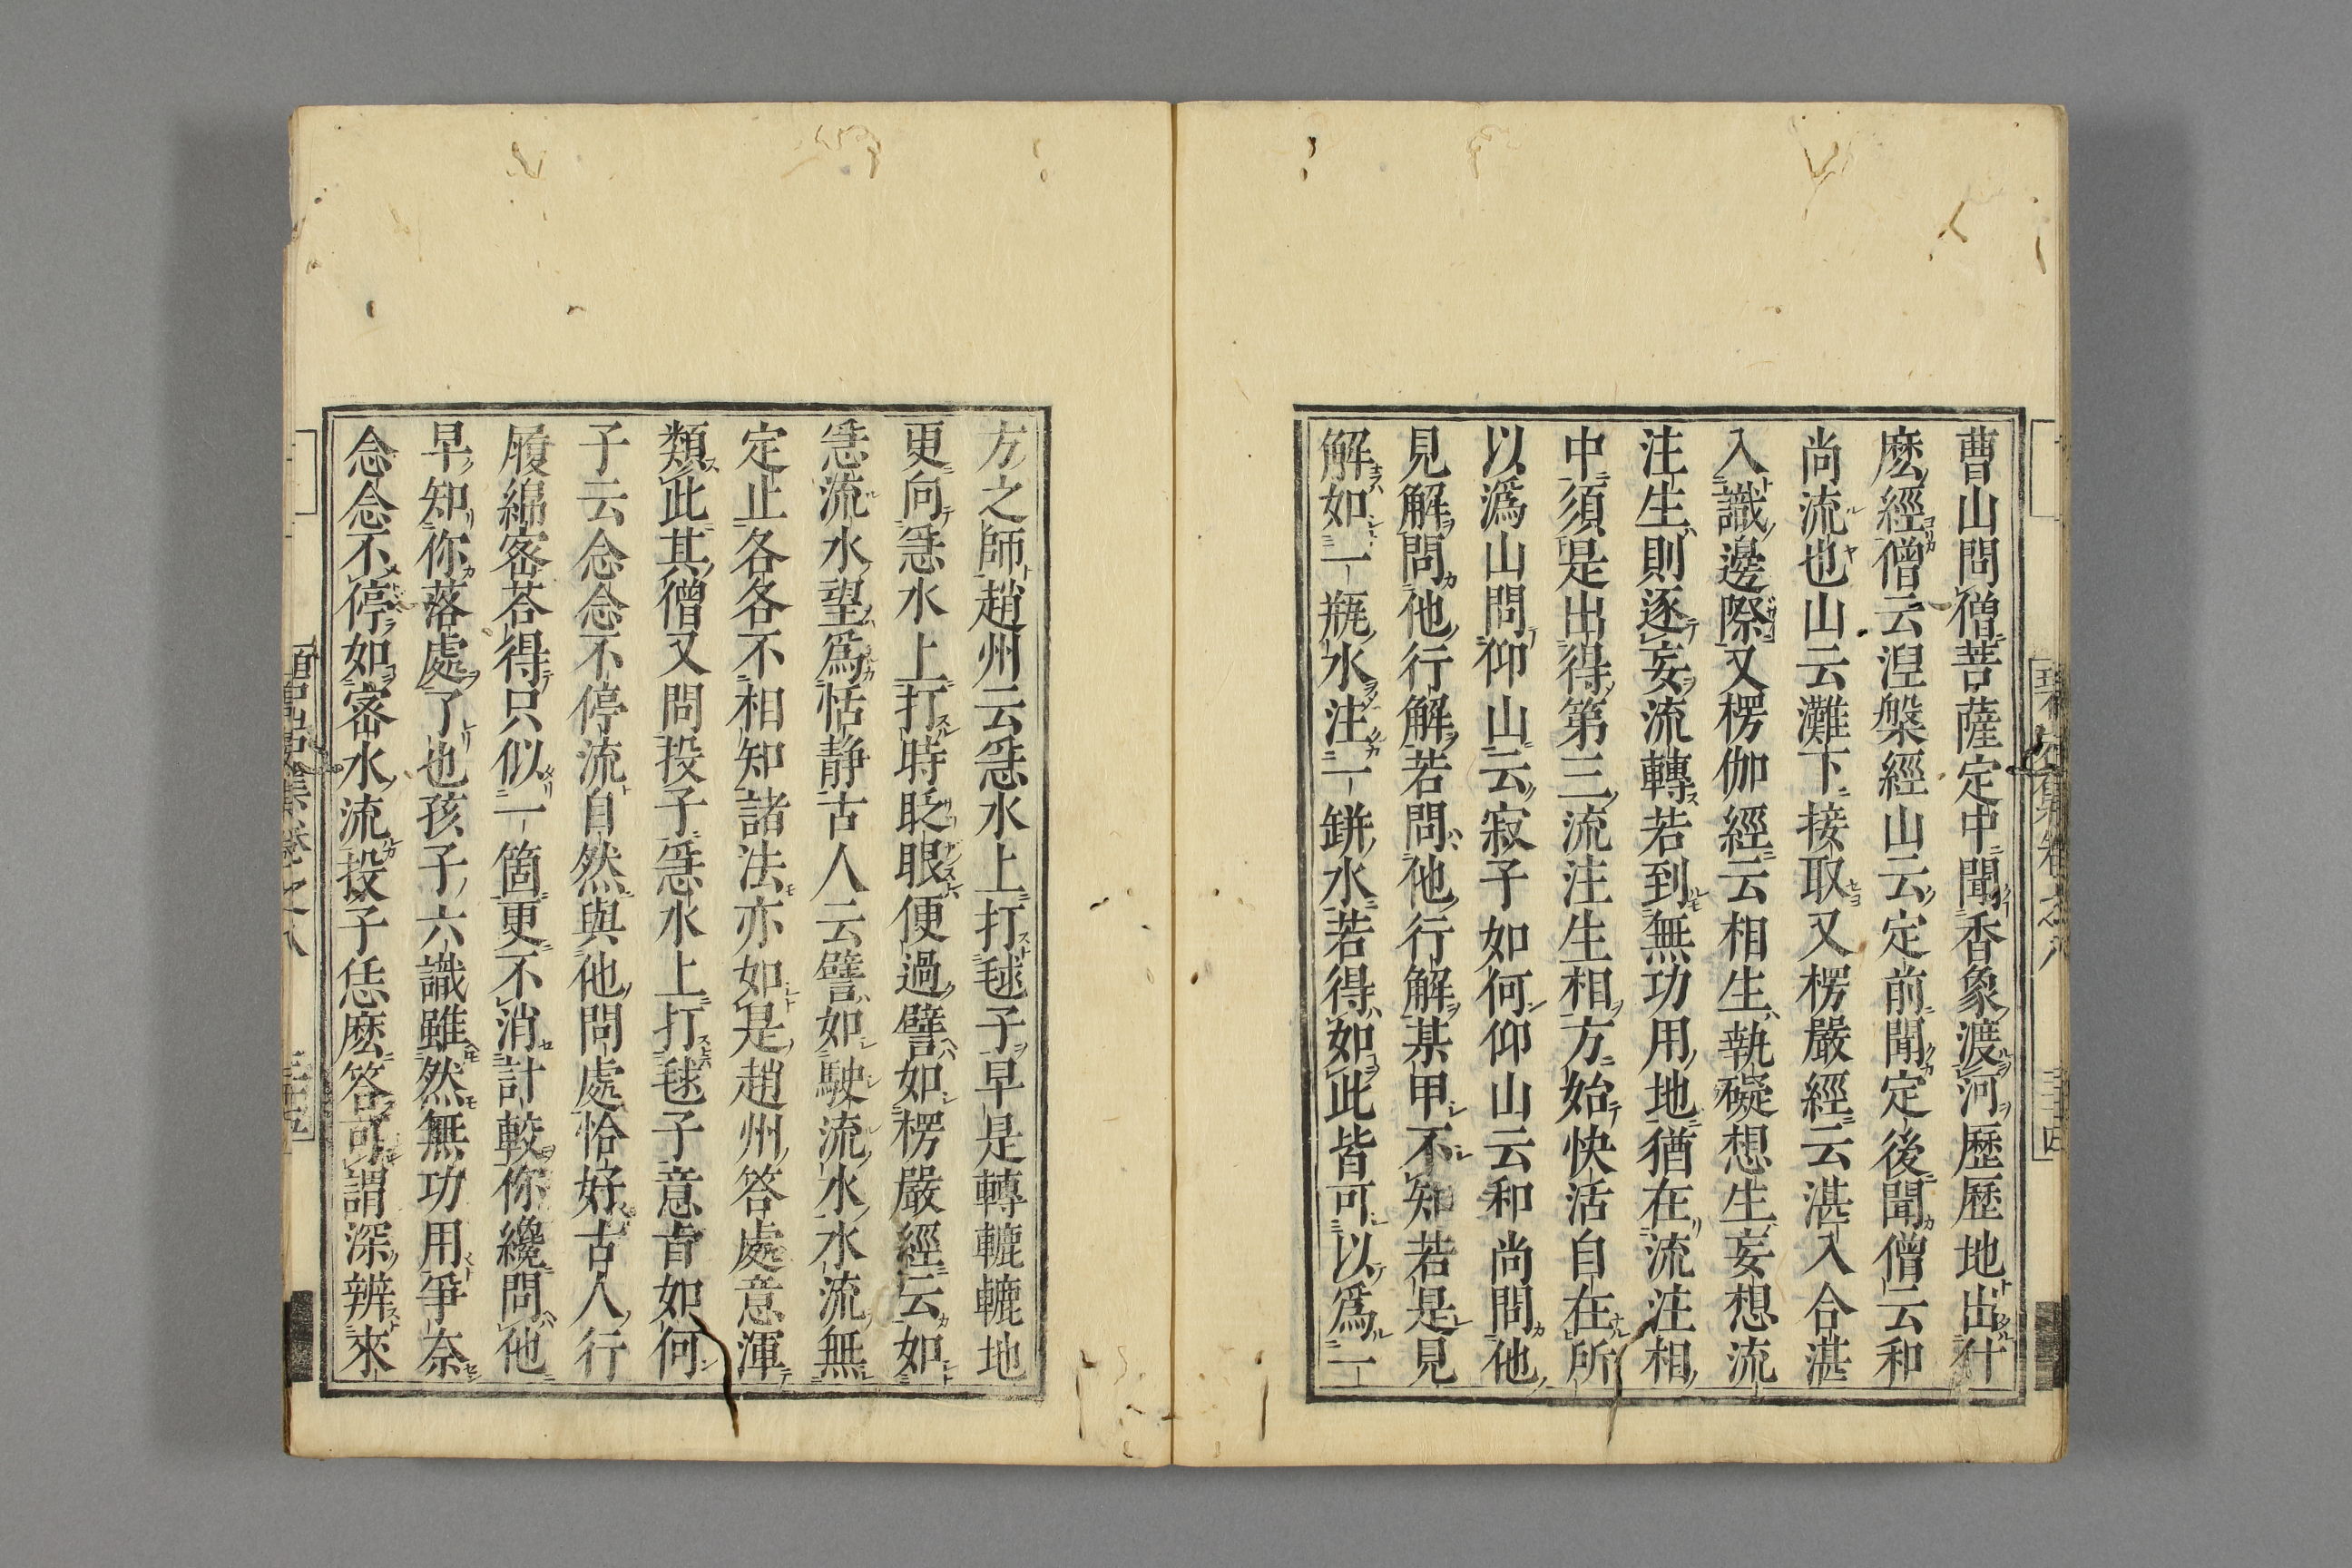 曹山問僧菩薩定中聞香象渡河歷歷地出什
麽經僧云涅槃經山云定前聞定後聞僧云和
尚流也山云灘下接取又楞嚴經云湛入合湛
入識邊際又楞伽經云相生執礙想生妄想流
注生則逐妄流轉若到無功用地猶在流注相
中須是出得第三流注生相方始快活自在所
以溈山問仰山云寂子如何仰山云和尚問他
見解問他行解若問他行解某甲不知若是見
解如一瓶水注一缾水若得如此皆可以爲一
方之師趙州云急水上打毬子早是轉轆轆地
更向急水上打時眨眼便過譬如楞嚴經云如
急流水望爲恬静古人云譬如駛流水水流無
定止各各不相知諸法亦如是趙州答處意渾
類此其僧又問投子急水上打毬子意旨如何
子云念念不停流自然與他問處恰好古人行
履綿密荅得只似一箇更不消計較你纔問他
早知你落處了也孩子六識雖然無功用爭奈
念念不停如密水流投子恁麽答可謂深辨來